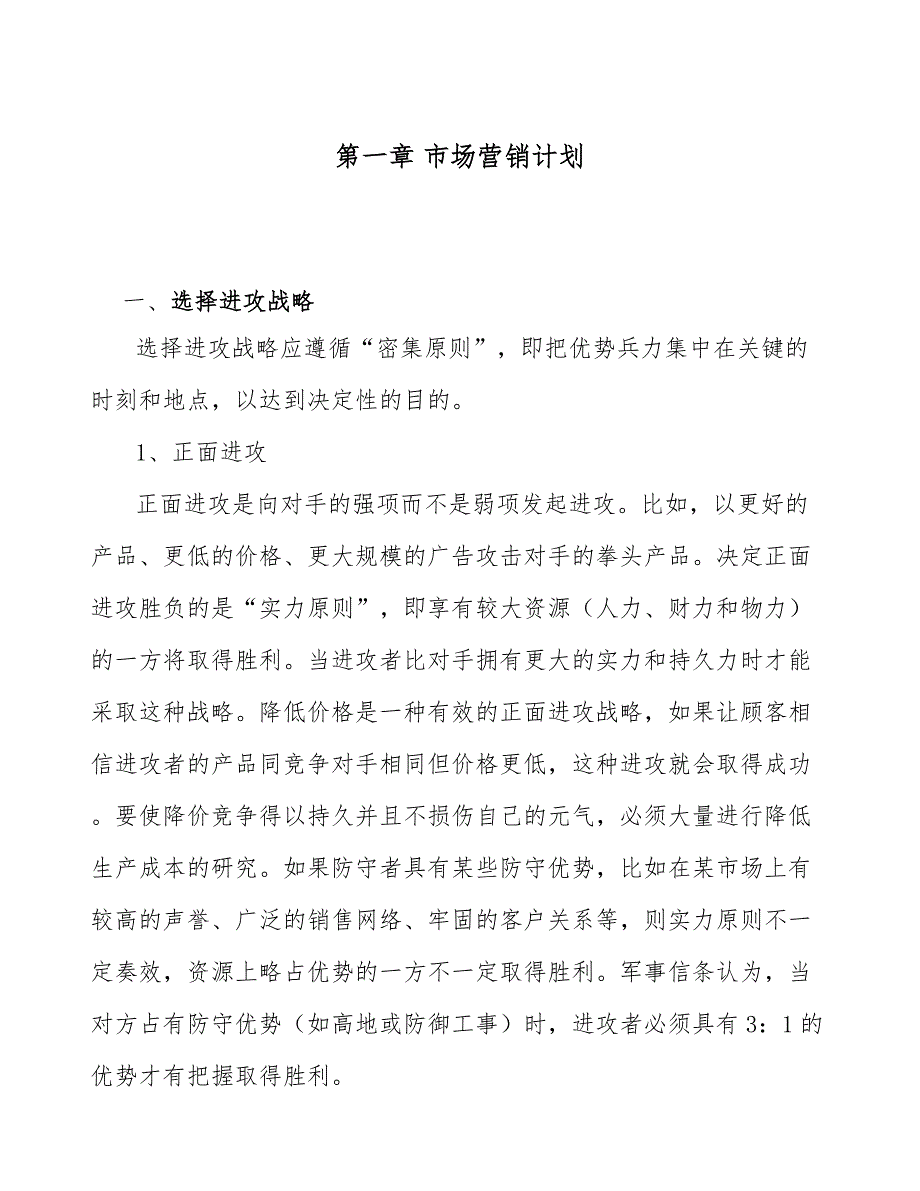 第一章 市场营销计划
一、选择进攻战略
选择进攻战略应遵循“密集原则”，即把优势兵力集中在关键的
时刻和地点，以达到决定性的目的。
1、正面进攻
正面进攻是向对手的强项而不是弱项发起进攻。比如，以更好的
产品、更低的价格、更大规模的广告攻击对手的拳头产品。决定正面
进攻胜负的是“实力原则”，即享有较大资源（人力、财力和物力）
的一方将取得胜利。当进攻者比对手拥有更大的实力和持久力时才能
采取这种战略。降低价格是一种有效的正面进攻战略，如果让顾客相
信进攻者的产品同竞争对手相同但价格更低，这种进攻就会取得成功
。要使降价竞争得以持久并且不损伤自己的元气，必须大量进行降低
生产成本的研究。如果防守者具有某些防守优势，比如在某市场上有
较高的声誉、广泛的销售网络、牢固的客户关系等，则实力原则不一
定奏效，资源上略占优势的一方不一定取得胜利。军事信条认为，当
对方占有防守优势（如高地或防御工事）时，进攻者必须具有3：1的
优势才有把握取得胜利。